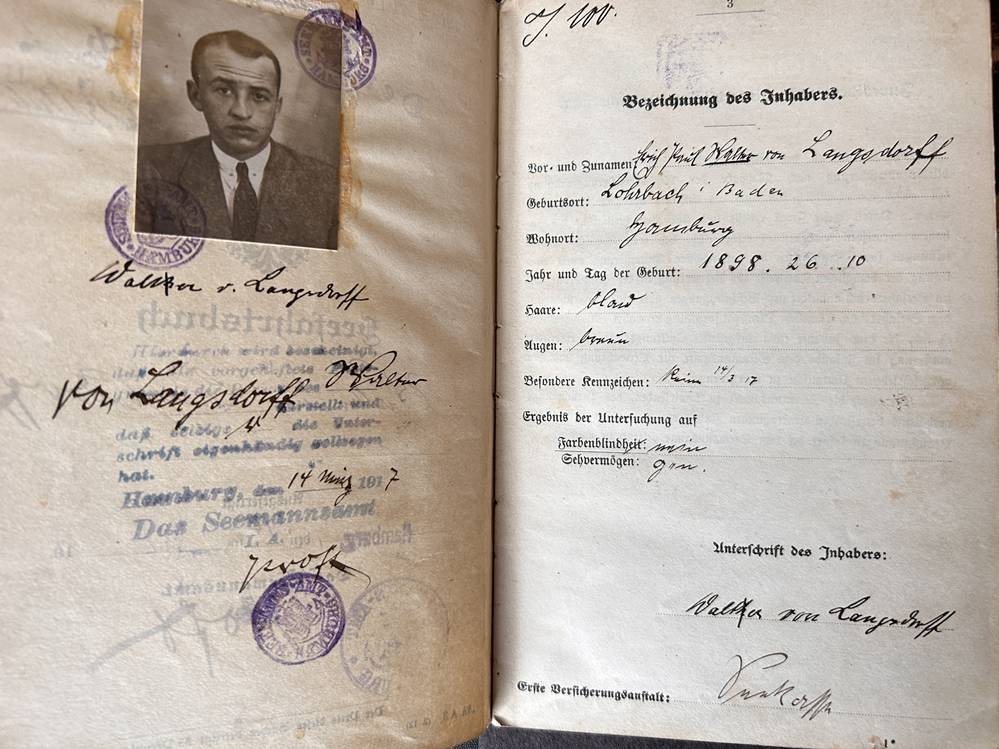 SEEMANNSAMT HAMBURG
Walther v. Langsdorff
Seefahrtsbuch
Hierdurch wird bescheinigt,
von Langsdorff Walter
daß die Unter-
schrift eigenhändig vollzogen
hat.
Hamburg, den 14 März 1917
Das Seemannsamt
I. A.
3
J. 100.
Bezeichnung des Inhabers.
Vor- und Zunamen: Erich Paul Walter von Langsdorff
Geburtsort: Lohrbach i Baden
Wohnort: Hamburg
Jahr und Tag der Geburt: 1898. 26. 10
Haare: blond
Augen: braun
Besondere Kennzeichen: Keine 14/3 17
Ergebnis der Untersuchung auf
Farbenblindheit: nein
Sehvermögen: gen.
Unterschrift des Inhabers:
Walther von Langsdorff
Erste Versicherungsanstalt: Seekasse
1*